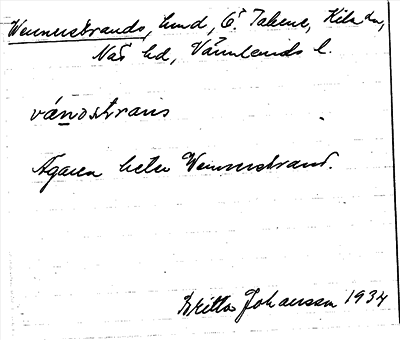 Wennerstrands, hmd, Ö. Takene, Kila sn,
Näs hd, Värmlands l.
vä́nostrans
Ägaren heter Wennerstrand.
Britta Johansson 1934